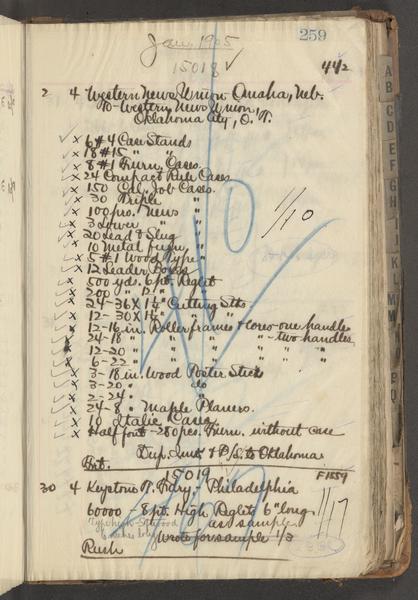 259
Jan. 1905
15018 ✓
44 2
2 4 Western News Union, Omaha, Neb.
To- Western News Union,
Oklahoma City, O. T.
6 #4 Case Stands
18 #15 " "
8 #1 Furn. Cases
24 Compact Rule Cases
150 Cal. Job Cases
30 Triple "
100 pro. News "
3 Lower "
20 Lead & Slug "
10 Metal furn. "
5 #1 Wood Type "
12 Leader Boxes
500 yds. 6 pt. Reglet
200 " 12 " "
24-36 X 14 Cutting Stks
12-30 X 14 " "
12-16 in. Roller frames & Cores-one handle
24-18 " " " " - two handles
12-20 " " " " "
6-22 " " " " "
3-18 in. Wood Poster Stick
3-20 " do
2-24 "
24-8 " Maple Planers
10 Italic Cases
Half font-280 pcs. Furn. without case
Dup. Inv. & B/L to Oklahoma
Frt.
1/10
15019 ✓
F1559
30 4 Keystone T. Fdry.- Philadelphia
60000 - 8 pt. High Reglets 6" long
as sample
Wrote for sample 1/3
Rush
1/17
A
B
C
D
E
F
G
H
I
J
K
L
M